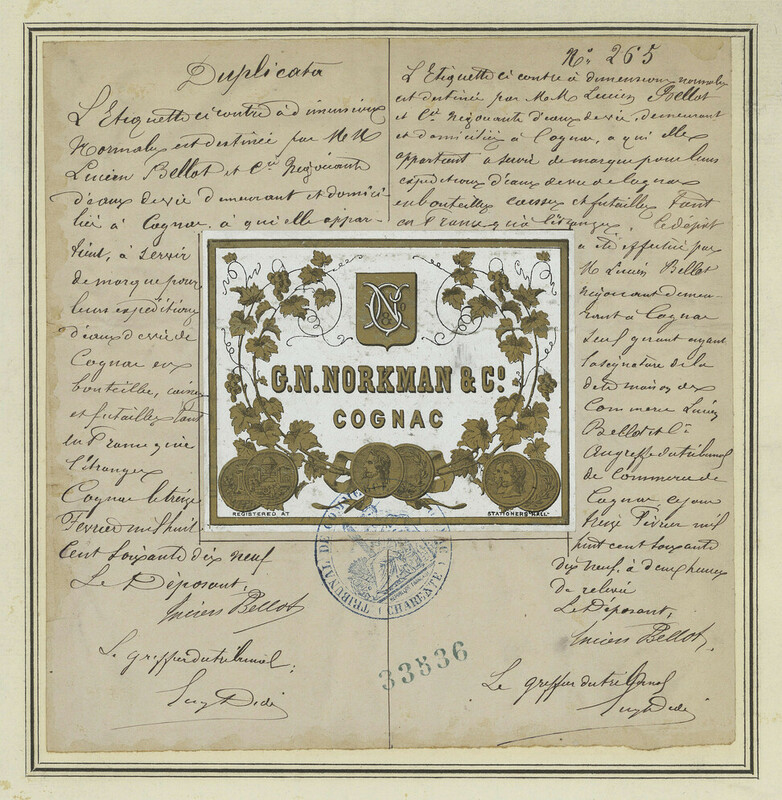 Duplicata
L'Etiquette ci contre à dimensions
Normales est destinée par MM
Lucien Bellot et Cie Négociants
d'eaux de vie demeurant et domici-
liés à Cognac, à qui elle appar-
tient, à servir
de marque pour
leurs expéditions
d'eaux de vie de
Cognac en
bouteilles, caisses
et futailles tant
en France qu'à
l'étranger
Cognac le treize
Février mil huit
cent soixante dix neuf
Le Déposant,
Lucien Bellot
Le greffier du tribunal,
No 265
L'Etiquette ci contre à dimensions normales
est destinée par MM Lucien Bellot
et Cie Négociants d'eaux de vie, demeurant
et domiciliés à Cognac, à qui elle
appartient à servir de marque pour leurs
expéditions d'eaux de vie de Cognac
en bouteilles caisses et futailles tant
en France qu'à l'étranger, le dépôt
a été effectué par
M Lucien Bellot
négociant demeu-
rant à Cognac
seul gérant ayant
la signature de la
dite maison de
Commerce Lucien
Bellot et Cie
Au greffe du tribunal
de Commerce de
Cognac ce jour
treize Février mil
huit cent soixante
dix neuf, à deux heures
de relevée
Le Déposant,
Lucien Bellot
Le greffier du tribunal
G.N.NORKMAN & Co.
COGNAC
REGISTERED AT
STATIONERS' HALL
TRIBUNAL DE COMMERCE
(CHARENTE)
33536